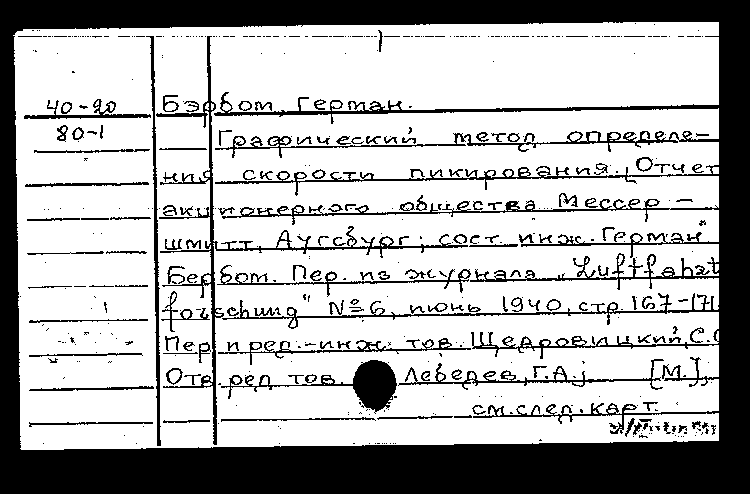 40-20 Бэрбом, Герман.
80-1 Графический метод определе-
ния скорости пикирования. [Отчет
акционерного общества Мессер -
шмитт, Аугсбург; сост. инж. Герман"
Бербом. Пер. из журнала „Luftfahrt
forschung" № 6, июнь 1940, стр 167-171
Пер и ред.-инж. тов. Щедровицкий, С.
Отв. ред тов. Лебедев, Г.А.j [М.],
см. след. карт.